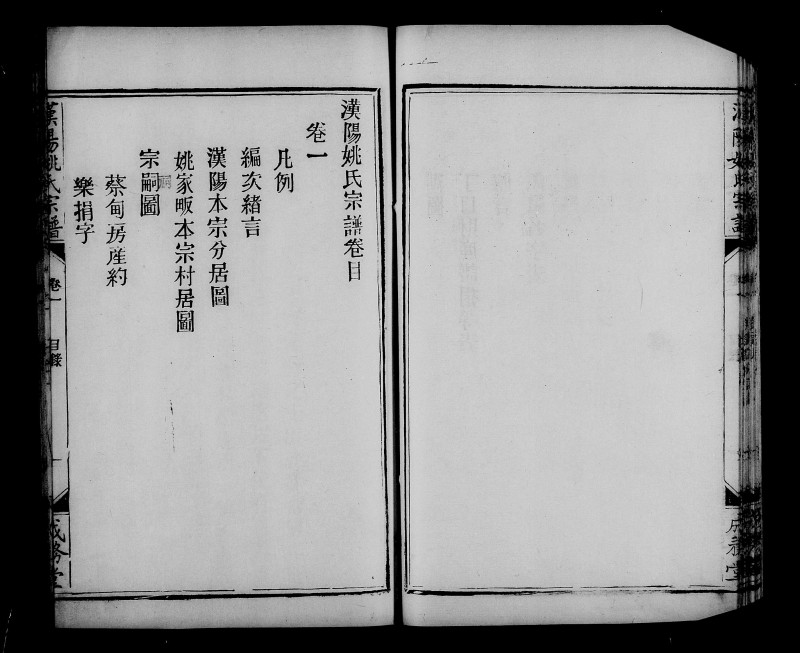 漢陽姚氏宗譜卷目
卷一
凡例
編次緒言
漢陽本宗分居圖
姚家畈本宗村居圖
宗嗣圖
蔡甸房産約
樂捐字
漢陽姚氏宗譜
卷一
目錄
成務堂